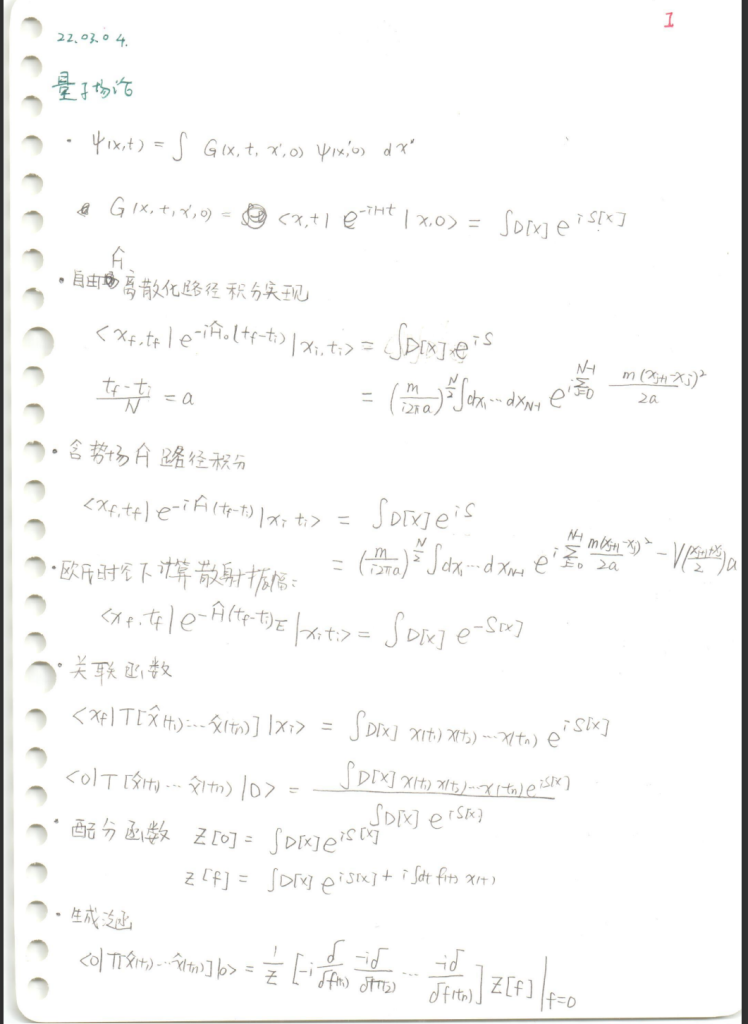 I
22.03.04.
量子场论
· ψ(x,t) = ∫ G(x,t,x',0) ψ(x',0) dx'
G(x,t,x',0) = <x,t| e^{-iHt} |x,0> = ∫D[x] e^{iS[x]}
· 自由Ĥ离散化路径积分实现
<x_f,t_f| e^{-iĤ₀(t_f-t_i)} |x_i,t_i> = ∫D[x] e^{iS}
\frac{t_f-t_i}{N} = a = (\frac{m}{i2πa})^{\frac{N}{2}} ∫dx_1…dx_{N-1} e^{i\sum_{j=0}^{N-1} \frac{m(x_{j+1}-x_j)^2}{2a}}
· 含势场Ĥ路径积分
<x_f,t_f| e^{-iĤ(t_f-t_i)} |x_i t_i> = ∫D[x] e^{iS}
= (\frac{m}{i2πa})^{\frac{N}{2}} ∫dx_1…dx_{N-1} e^{i\sum_{j=0}^{N-1} \frac{m(x_{j+1}-x_j)^2}{2a} - V(\frac{x_{j+1}+x_j}{2})a}
· 欧氏时空下计算散射振幅:
<x_f,t_f| e^{-Ĥ(t_f-t_i)_E} |x_i t_i> = ∫D[x] e^{-S[x]}
· 关联函数
<x_f|T[x̂(t_1)…x̂(t_n)]|x_i> = ∫D[x] x(t_1) x(t_2)…x(t_n) e^{iS[x]}
<0|T[x̂(t_1)…x̂(t_n)|0> = \frac{∫D[x] x(t_1) x(t_2)…x(t_n) e^{iS[x]}}{∫D[x] e^{iS[x]}}
· 配分函数 Z[0] = ∫D[x] e^{iS[x]}
Z[f] = ∫D[x] e^{iS[x] + i∫dt f(t) x(t)}
· 生成泛函
<0|T[x̂(t_1)…x̂(t_n)]|0> = \frac{1}{Z} [-i\frac{δ}{δf(t_1)} \frac{-iδ}{δf(t_2)} … \frac{-iδ}{δf(t_n)}] Z[f] |_{f=0}